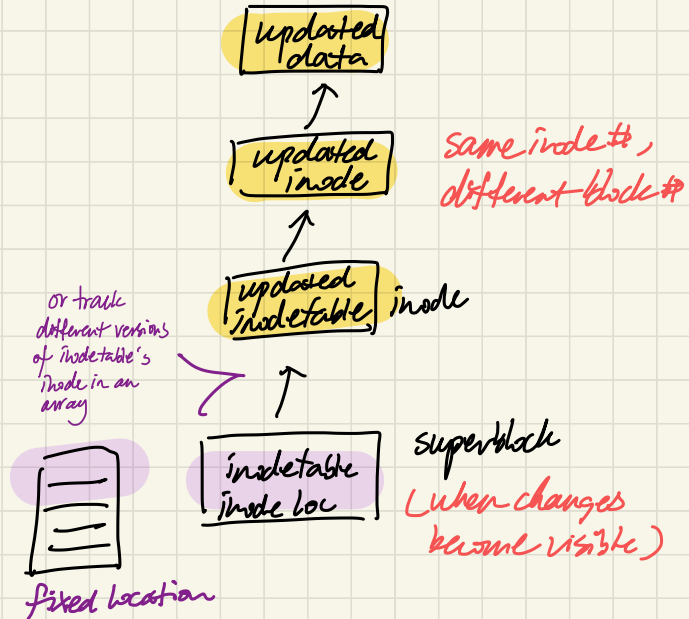 updated
data
updated
inode
same inode #,
different block #
updated
inodetable
inode
or track
different versions
of inodetable's
inode in an
array
inodetable
inode loc
superblock
(when changes
become visible)
fixed location